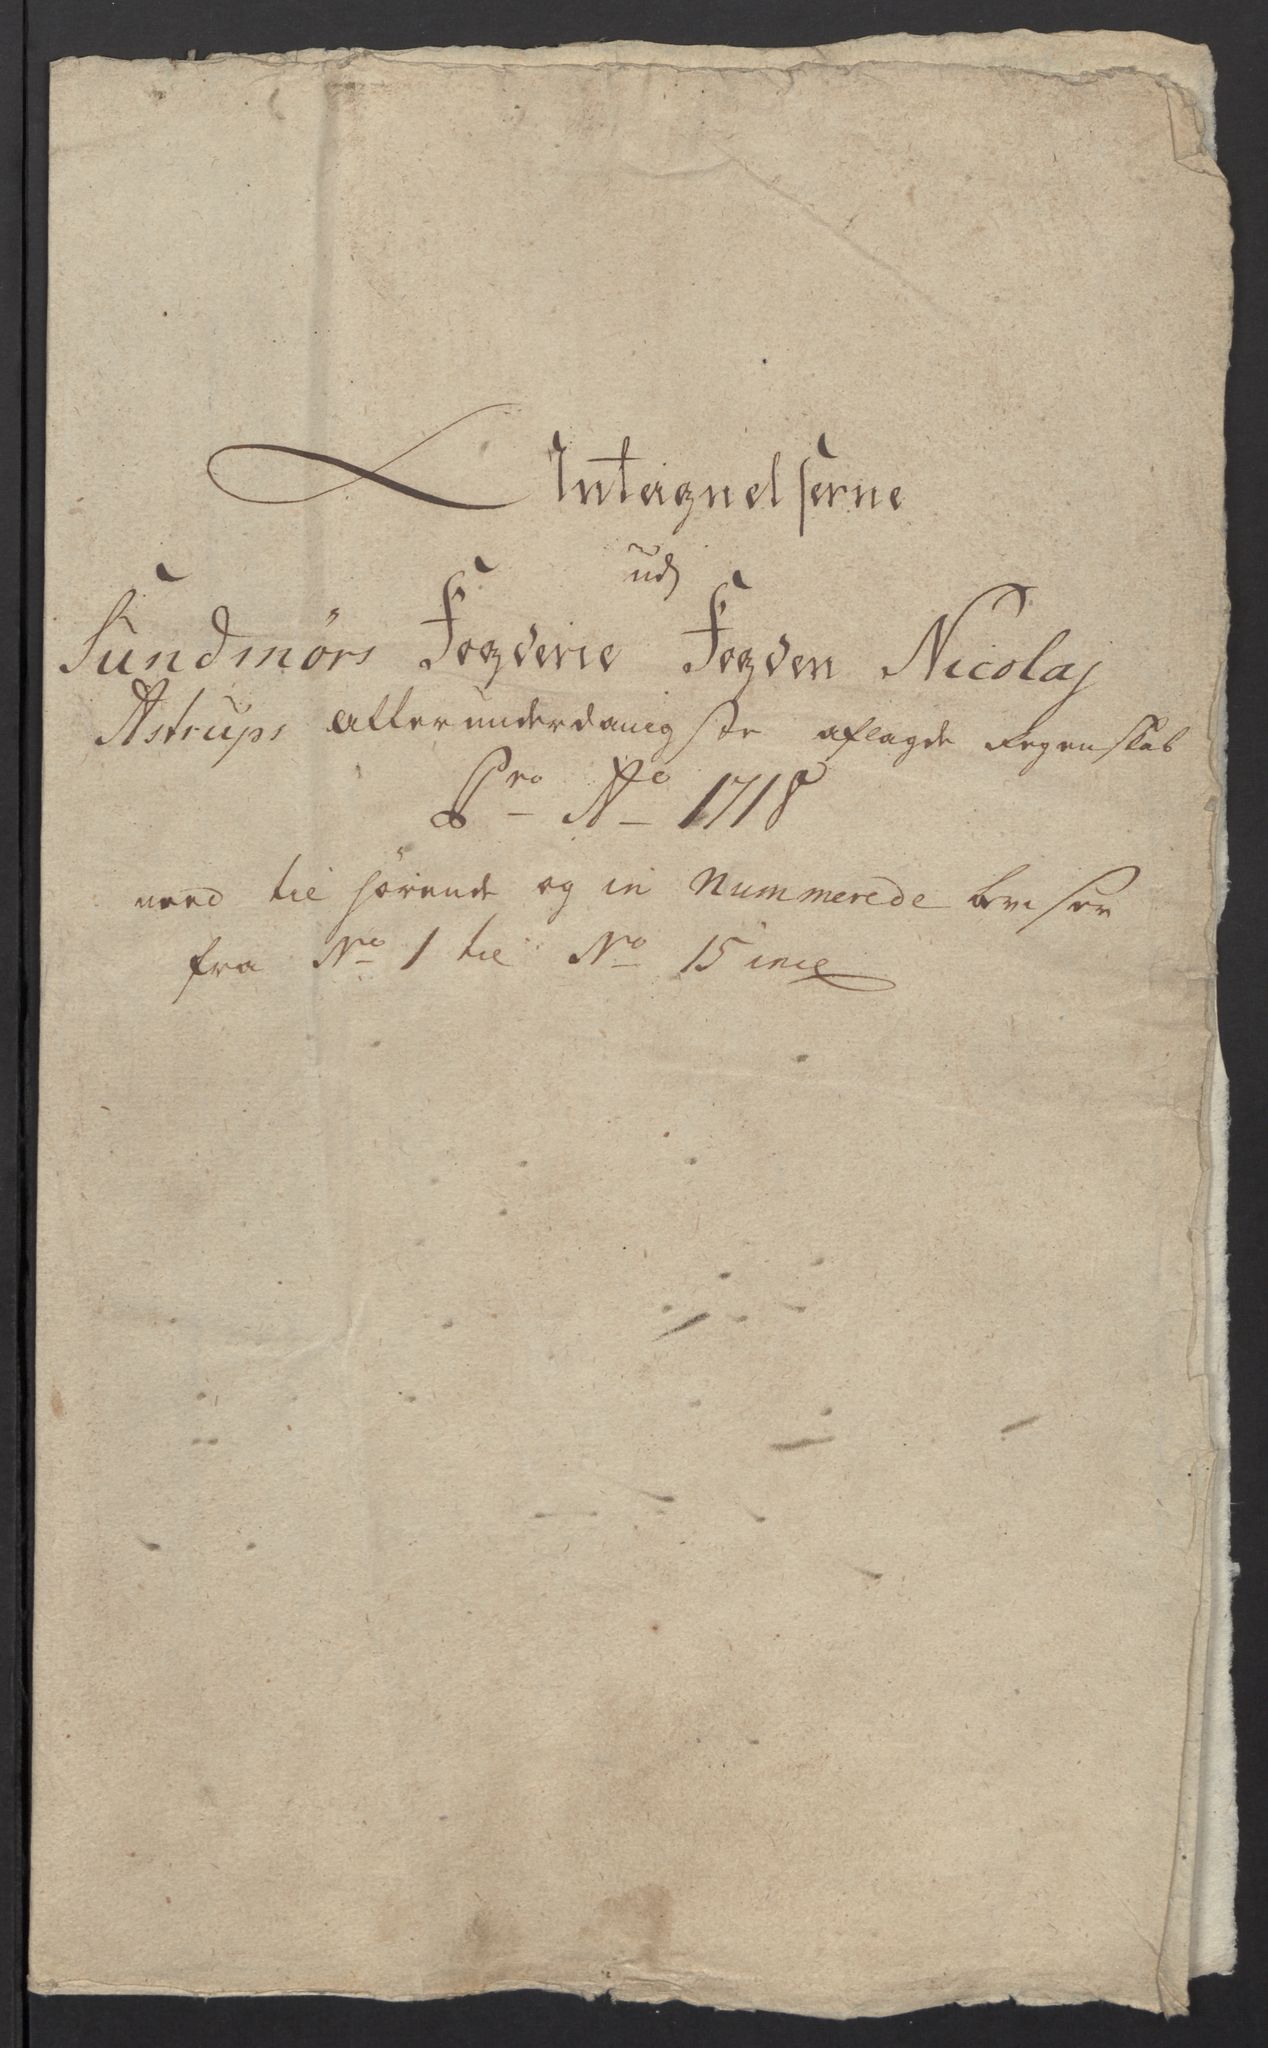 Antegnelserne
udj
Sundmørs Fogderie Fogden Nicolaj
Astrups allerunderdanigste aflagde Regenskab
Pro Ao 1718
med til hørende og in Nummerede beviser
fra No 1 til No 15 incl